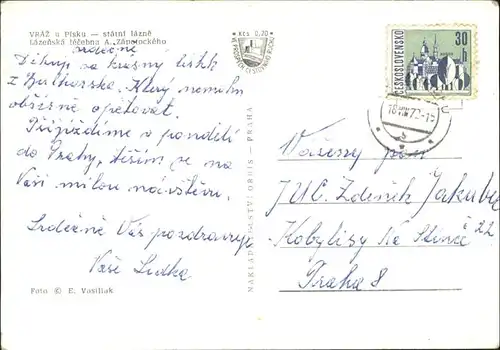 VRÁŽ u Písku — státní lázně
Lázeňská léčebna A. Zápotockého
Kčs 0,20
srdečně
Děkuji za krásný lístek
z Bulharska. Který nemohu
obsáhle opětovat.
Přijíždíme v pondělí
do Prahy, těším se na
Vaši milou návštěvu.
Srdečně Vás pozdravuje
Vaše Lidka
Foto © E. Vasiliak
NAKLADATELSTVÍ ORBIS — PRAHA
ČESKOSLOVENSKO
30
h
Vážený pan
JUC. Zdeněk Jakubec
Kobylisy Na Stínce 22
Praha 8